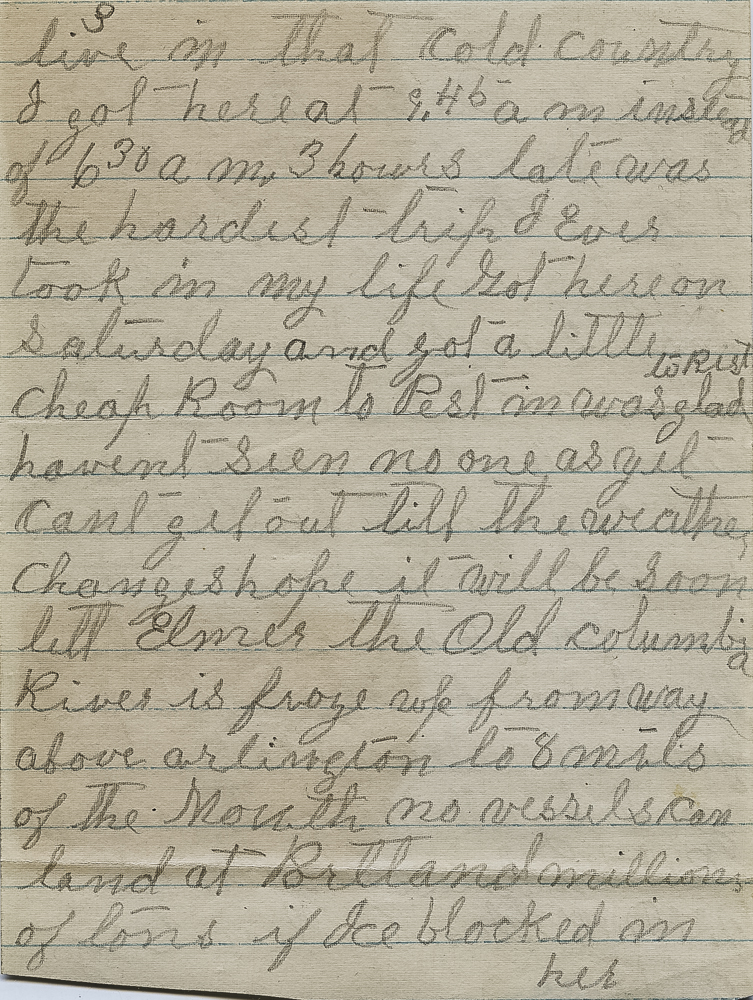 3
live in that cold country
I got here at 9.45 a m insted
of 6 30 a m. 3 hours late was
the hardest trip I Ever
took in my life Got here on
Saturday and got a little
to Rest
Cheap Room to Rest in was glad
havent seen no one as yet
cant get out till the weather
Changes hope it will be soon
tell Elmer the Old columbia
River is froze up from way
above arlington to 8 mils
of the Mouth no vessels can
land at Portland millions
of tons if Ice blocked in
her